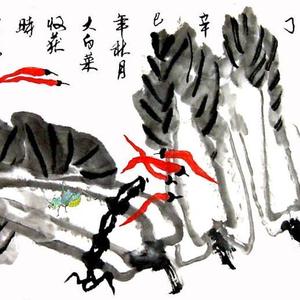 丁
辛
巳
年秋月
大白菜
收获
時